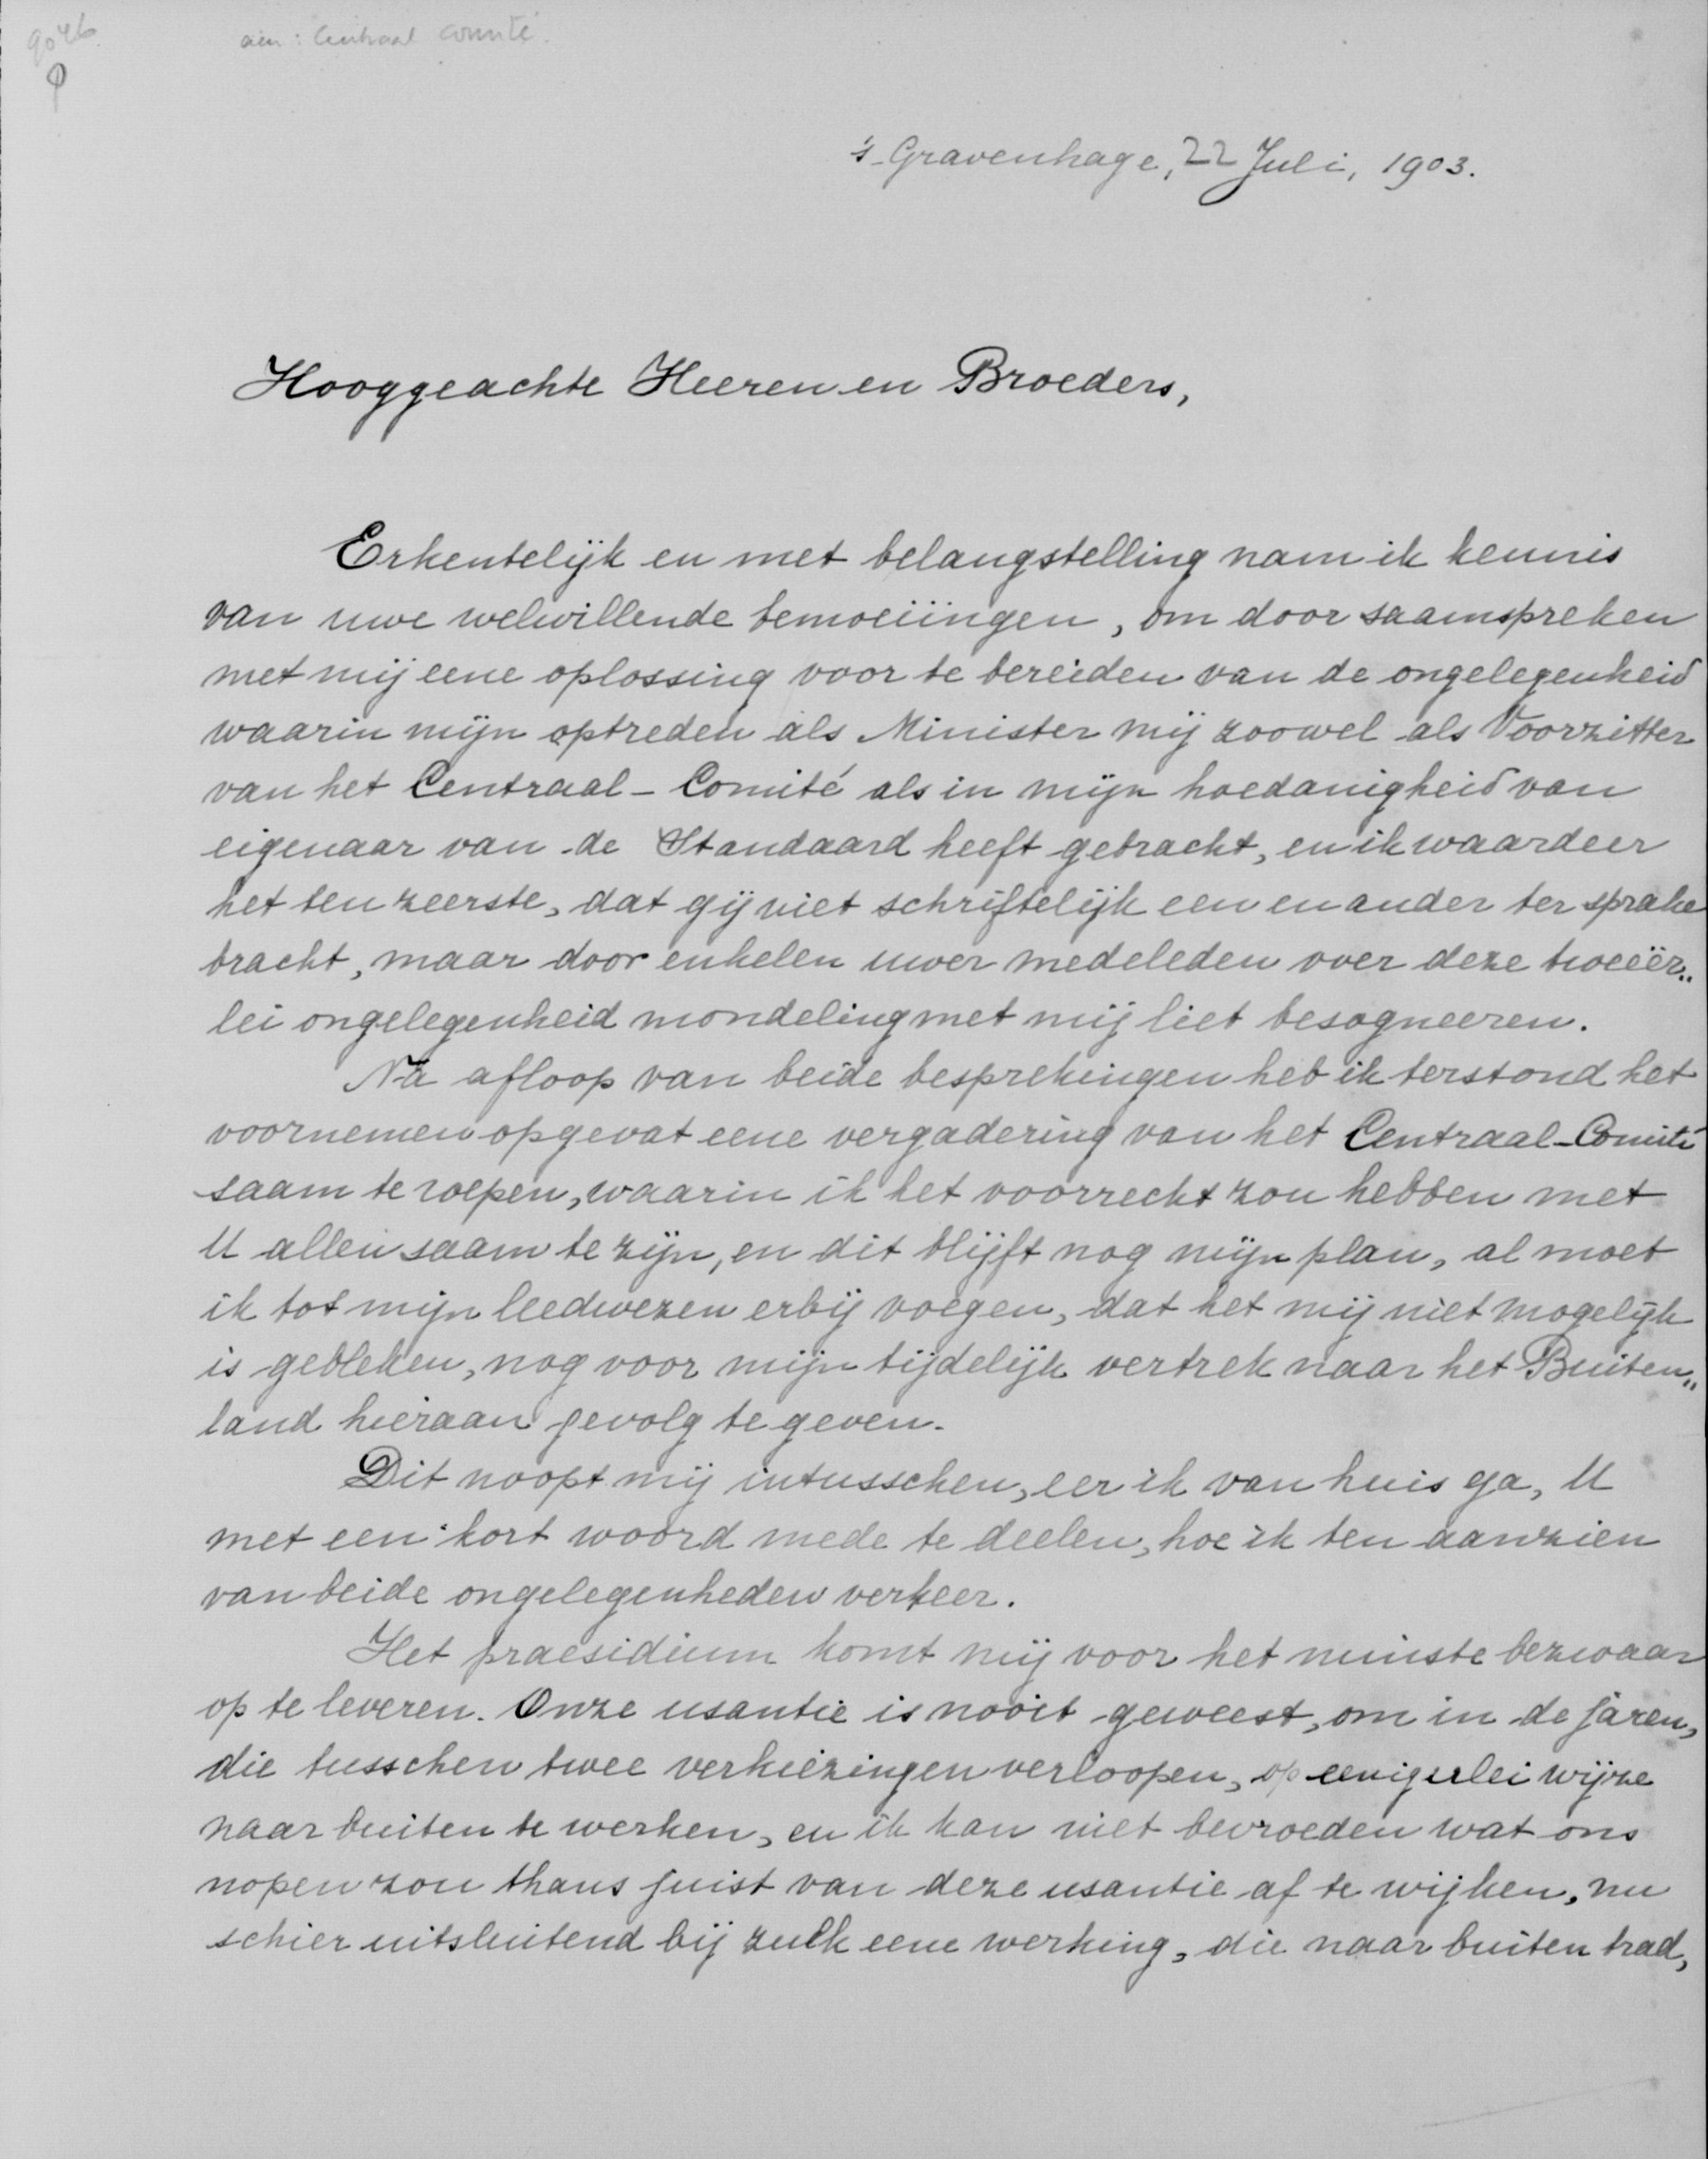 9046
aan: Centraal Comité.
's-Gravenhage, 22 Juli, 1903.
Hooggeachte Heeren en Broeders,
Erkentelijk en met belangstelling nam ik kennis
van uwe welwillende bemoeiingen, om door saamspreken
met mij eene oplossing voor te bereiden van de ongelegenheid
waarin mijn optreden als Minister mij zoowel als Voorzitter
van het Centraal-Comité als in mijn hoedanigheid van
eigenaar van de Standaard heeft gebracht, en ik waardeer
het ten zeerste, dat gij niet schriftelijk een en ander ter sprake
bracht, maar door enkelen uwer medeleden over deze tweeër„
lei ongelegenheid mondeling met mij liet besogneeren.
Na afloop van beide besprekingen heb ik terstond het
voornemen opgevat eene vergadering van het Centraal-Comité
saam te roepen, waarin ik het voorrecht zou hebben met
U allen saam te zijn, en dit blijft nog mijn plan, al moet
ik tot mijn leedwezen erbij voegen, dat het mij niet mogelijk
is gebleken, nog voor mijn tijdelijk vertrek naar het Buiten„
land hieraan gevolg te geven.
Dit noopt mij intusschen, eer ik van huis ga, U
met een kort woord mede te deelen, hoe ik ten aanzien
van beide ongelegenheden verkeer.
Het praesidium komt mij voor het minste bezwaar
op te leveren. Onze usantie is nooit geweest, om in de jaren,
die tusschen twee verkiezingen verloopen, op eenigerlei wijze
naar buiten te werken, en ik kan niet bevroeden wat ons
nopen zou thans juist van deze usantie af te wijken, nu
schier uitsluitend bij zulk eene werking, die naar buiten trad,